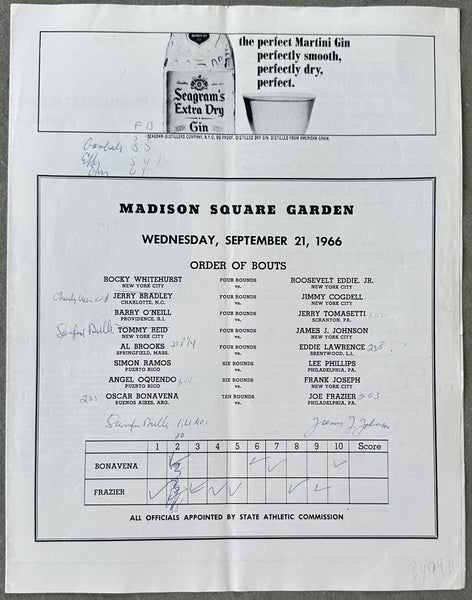 the perfect Martini Gin
perfectly smooth,
perfectly dry,
perfect.
Seagram's
Extra Dry
Gin
SEAGRAM-DISTILLERS COMPANY, N.Y.C. 90 PROOF. DISTILLED DRY GIN. DISTILLED FROM AMERICAN GRAIN.
MADISON SQUARE GARDEN
WEDNESDAY, SEPTEMBER 21, 1966
ORDER OF BOUTS
ROCKY WHITEHURST FOUR ROUNDS ROOSEVELT EDDIE, JR.
NEW YORK CITY vs. NEW YORK CITY
JERRY BRADLEY FOUR ROUNDS JIMMY COGDELL
CHARLOTTE, N.C. vs. NEW YORK CITY
BARRY O'NEILL FOUR ROUNDS JERRY TOMASETTI
PROVIDENCE, R.I. vs. SCRANTON, PA.
TOMMY REID FOUR ROUNDS JAMES J. JOHNSON
NEW YORK CITY vs. NEW YORK CITY
AL BROOKS FOUR ROUNDS EDDIE LAWRENCE
SPRINGFIELD, MASS. vs. BRENTWOOD, L.I.
SIMON RAMOS SIX ROUNDS LEE PHILLIPS
PUERTO RICO vs. PHILADELPHIA, PA.
ANGEL OQUENDO SIX ROUNDS FRANK JOSEPH
PUERTO RICO vs. NEW YORK CITY
OSCAR BONAVENA TEN ROUNDS JOE FRAZIER
BUENOS AIRES, ARG. vs. PHILADELPHIA, PA.
1 2 3 4 5 6 7 8 9 10 Score
BONAVENA
FRAZIER
ALL OFFICIALS APPOINTED BY STATE ATHLETIC COMMISSION